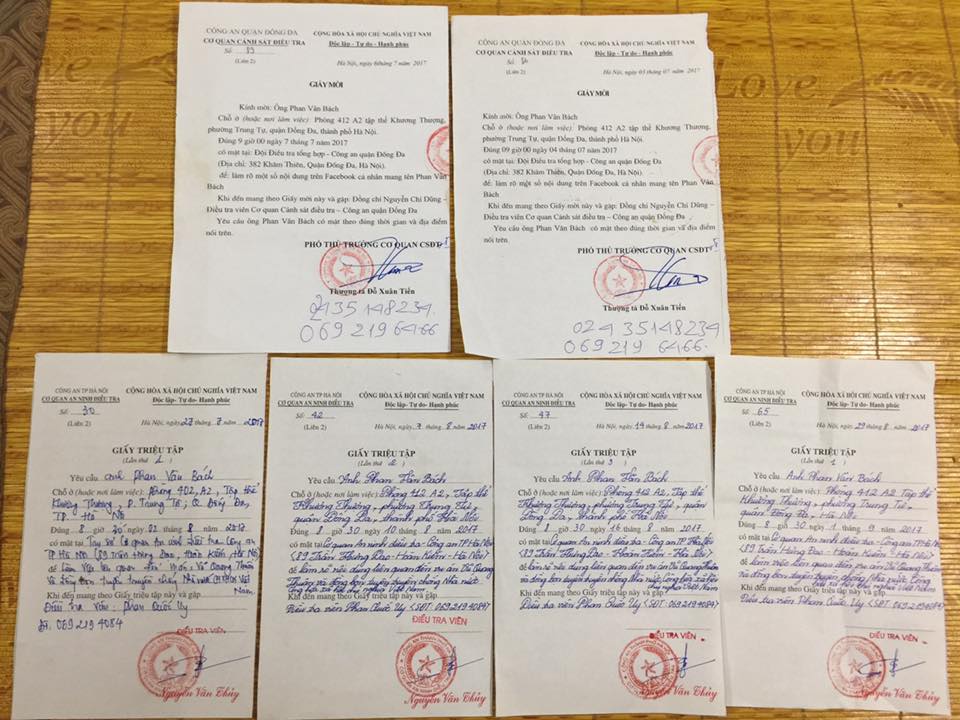 CÔNG AN QUẬN ĐỐNG ĐA
CƠ QUAN CẢNH SÁT ĐIỀU TRA
Số 89
(Liên 2)
CỘNG HÒA XÃ HỘI CHỦ NGHĨA VIỆT NAM
Độc lập - Tự do - Hạnh phúc
Hà Nội, ngày 6 tháng 7 năm 2017
GIẤY MỜI
Kính mời: Ông Phan Văn Bách
Chỗ ở (hoặc nơi làm việc): Phòng 412 A2 tập thể Khương Thượng,
phường Trung Tự, quận Đống Đa, thành phố Hà Nội.
Đúng 9 giờ 00 ngày 7 tháng 7 năm 2017
có mặt tại: Đội Điều tra tổng hợp - Công an quận Đống Đa
(Địa chỉ: 382 Khâm Thiên, Quận Đống Đa, Hà Nội).
để: làm rõ một số nội dung trên Facebook cá nhân mang tên Phan Văn
Bách
Khi đến mang theo Giấy mời này và gặp: Đồng chí Nguyễn Chí Dũng –
Điều tra viên Cơ quan Cảnh sát điều tra – Công an quận Đống Đa
Yêu cầu ông Phan Văn Bách có mặt theo đúng thời gian và địa điểm
nói trên.
PHÓ THỦ TRƯỞNG CƠ QUAN CSĐT
Thượng tá Đỗ Xuân Tiến
2435148234
069 219 6466
CÔNG AN QUẬN ĐỐNG ĐA
CƠ QUAN CẢNH SÁT ĐIỀU TRA
Số
(Liên 2)
CỘNG HÒA XÃ HỘI CHỦ NGHĨA VIỆT NAM
Độc lập - Tự do - Hạnh phúc
Hà Nội, ngày 03 tháng 07 năm 2017
GIẤY MỜI
Kính mời: Ông Phan Văn Bách
Chỗ ở (hoặc nơi làm việc): Phòng 412 A2 tập thể Khương Thượng,
phường Trung Tự, quận Đống Đa, thành phố Hà Nội.
Đúng 09 giờ 00 ngày 04 tháng 07 năm 2017
có mặt tại: Đội Điều tra tổng hợp - Công an quận Đống Đa
(Địa chỉ: 382 Khâm Thiên, Quận Đống Đa, Hà Nội).
để: làm rõ một số nội dung trên Facebook cá nhân mang tên Phan Văn
Bách
Khi đến mang theo Giấy mời này và gặp: Đồng chí Nguyễn Chí Dũng –
Điều tra viên Cơ quan Cảnh sát điều tra – Công an quận Đống Đa
Yêu cầu ông Phan Văn Bách có mặt theo đúng thời gian và địa điểm
nói trên.
PHÓ THỦ TRƯỞNG CƠ QUAN CSĐT
Thượng tá Đỗ Xuân Tiến
024 35148234
069 219 6466
Love
you
you
CÔNG AN TP HÀ NỘI
CƠ QUAN AN NINH ĐIỀU TRA
Số: 30
(Liên 2)
CỘNG HÒA XÃ HỘI CHỦ NGHĨA VIỆT NAM
Độc lập- Tự do- Hạnh phúc
Hà Nội, ngày 27 tháng 7 năm 2017
GIẤY TRIỆU TẬP
(Lần thứ 1)
Yêu cầu anh Phan Văn Bách
Chỗ ở (hoặc nơi làm việc): Phòng 402, A2, Tập thể
Khương Thượng, P. Trung Tự, Q. Đống Đa,
TP. Hà Nội
Đúng 8 giờ 30 ngày 02 tháng 8 năm 2017
có mặt tại Trụ sở Cơ quan An ninh điều tra Công an
TP Hà Nội (89 Trần Hưng Đạo, Hoàn Kiếm, Hà Nội)
để Làm việc liên quan đến Vũ Quang Thuận
và đồng bọn tuyên truyền chống Nhà nước CHXHCN Việt
Nam
Khi đến mang theo Giấy triệu tập này và gặp
Điều tra viên: Phan Quốc Uy
ĐT: 069 219 4084
ĐIỀU TRA VIÊN
Nguyễn Văn Thủy
CÔNG AN TP HÀ NỘI
CƠ QUAN AN NINH ĐIỀU TRA
Số: 42
(Liên 2)
CỘNG HÒA XÃ HỘI CHỦ NGHĨA VIỆT NAM
Độc lập- Tự do- Hạnh phúc
Hà Nội, ngày 7 tháng 8 năm 2017
GIẤY TRIỆU TẬP
(Lần thứ 2)
Yêu cầu Anh Phan Văn Bách
Chỗ ở (hoặc nơi làm việc) Phòng 412 A2, Tập thể
Khương Thượng, phường Trung Tự,
quận Đống Đa, thành phố Hà Nội
Đúng 8 giờ 30
có mặt tại Cơ quan An ninh điều tra Công an TP Hà Nội
(89 Trần Hưng Đạo - Hoàn Kiếm - Hà Nội)
để làm rõ nội dung liên quan đến vụ án Vũ Quang
Thuận và đồng bọn tuyên truyền chống Nhà nước
Cộng hòa xã hội chủ nghĩa Việt Nam
Khi đến mang theo Giấy triệu tập này và gặp
Điều tra viên Phan Quốc Uy (SĐT: 0692194084)
ĐIỀU TRA VIÊN
Nguyễn Văn Thủy
CÔNG AN TP HÀ NỘI
CƠ QUAN AN NINH ĐIỀU TRA
Số: 47
(Liên 2)
CỘNG HÒA XÃ HỘI CHỦ NGHĨA VIỆT NAM
Độc lập- Tự do- Hạnh phúc
Hà Nội, ngày 14 tháng 8 năm 2017
GIẤY TRIỆU TẬP
(Lần thứ 3)
Yêu cầu Anh Phan Văn Bách
Chỗ ở (hoặc nơi làm việc) Phòng 412 A2, Tập thể
Khương Thượng, phường Trung Tự,
quận Đống Đa, thành phố Hà Nội
Đúng 8 giờ 30 ngày 16 tháng 8 năm 2017
có mặt tại Cơ quan An ninh điều tra Công an TP Hà Nội
(89 Trần Hưng Đạo - Hoàn Kiếm - Hà Nội)
để làm rõ nội dung liên quan đến vụ án Vũ Quang Thuận
và đồng bọn tuyên truyền chống Nhà nước Cộng hòa xã hội
chủ nghĩa Việt Nam
Khi đến mang theo Giấy triệu tập này và gặp
Điều tra viên Phan Quốc Uy (SĐT: 0692194084)
ĐIỀU TRA VIÊN
Nguyễn Văn Thủy
CÔNG AN TP HÀ NỘI
CƠ QUAN AN NINH ĐIỀU TRA
Số: 65
(Liên 2)
CỘNG HÒA XÃ HỘI CHỦ NGHĨA VIỆT NAM
Độc lập- Tự do- Hạnh phúc
Hà Nội, ngày 29 tháng 8 năm 2017
GIẤY TRIỆU TẬP
(Lần thứ 1)
Yêu cầu Anh Phan Văn Bách
Chỗ ở (hoặc nơi làm việc): Phòng 412 A2, Tập thể
Khương Thượng, phường Trung Tự,
quận Đống Đa, TP Hà Nội
Đúng 8 giờ 30 ngày 1 tháng 9 năm 2017
có mặt tại Cơ quan An ninh điều tra Công an TP Hà Nội
(89 Trần Hưng Đạo - Hoàn Kiếm - Hà Nội)
để làm việc liên quan đến vụ án Vũ Quang Thuận
và đồng bọn tuyên truyền chống Nhà nước Cộng
hòa xã hội chủ nghĩa Việt Nam
Khi đến mang theo Giấy triệu tập này và gặp
Điều tra viên Phan Quốc Uy (SĐT: 0692194084)
ĐIỀU TRA VIÊN
Nguyễn Văn Thủy